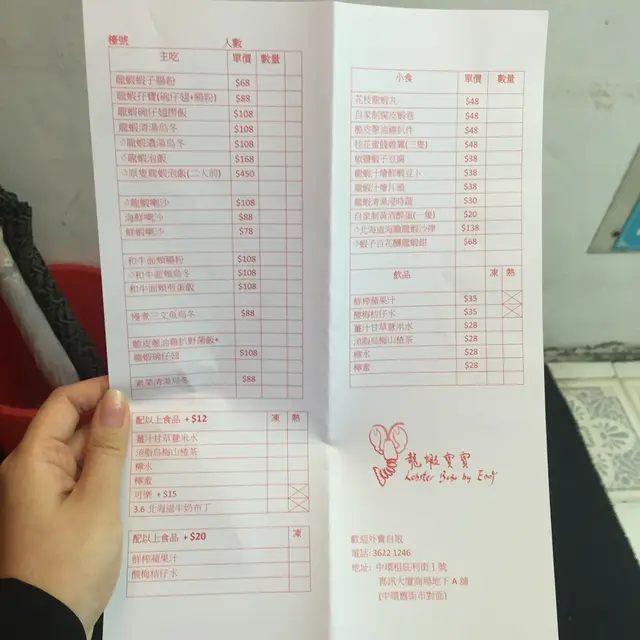 檯號 人數
主吃 單價 數量
龍蝦蝦子腸粉 $68
龍蝦孖寶(碗仔翅+腸粉) $88
龍蝦碗仔翅撈飯 $108
龍蝦清湯烏冬 $108
龍蝦濃湯烏冬 $108
龍蝦泡飯 $168
原隻龍蝦泡飯(二人前) $450
龍蝦喇沙 $108
海鮮喇沙 $88
鮮蝦喇沙 $78
和牛面頰腸粉 $108
和牛面頰烏冬 $108
和牛面頰煎蛋飯 $108
慢煮三文魚烏冬 $88
脆皮薑油雞扒野蒲飯+
龍蝦碗仔翅 $108
素菜清湯烏冬 $88
配以上食品 +$12 凍 熱
薑汁甘草薏米水
洛神烏梅山楂茶
檸水
檸蜜
可樂 +$15
3.6 北海道牛奶布丁
配以上食品 +$20 凍
鮮榨蘋果汁
酸梅桔仔水
小食 單價 數量
花枝龍蝦丸 $48
自家制腐皮蝦卷 $48
脆皮薑油雞扒件 $48
桂花蜜鋒雞翼(三隻) $48
椒鹽蝦子豆腐 $38
龍蝦汁燴鮮蝦豆卜 $38
龍蝦汁燴月頭 $38
龍蝦清湯浸時蔬 $30
自家制黃酒醉蛋(一隻) $20
北海道海膽龍蝦沙律 $138
蝦子百花釀龍蝦鉗 $68
飲品 凍 熱
鮮榨蘋果汁 $35
酸梅桔仔水 $35
薑汁甘草薏米水 $28
洛神烏梅山楂茶 $28
檸水 $28
檸蜜 $28
龍蝦寶寶
Lobster Bobo by Eddy
歡迎外賣自取
電話: 3622 1246
地址: 中環租庇利街 1 號
喜訊大廈商場地下 A 舖
(中環舊街市對面)